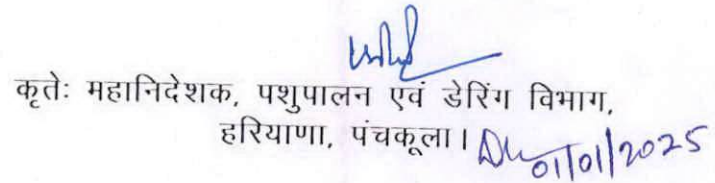 कृतेः महानिदेशक, पशुपालन एवं डेरिंग विभाग,
हरियाणा, पंचकूला।
01/01/2025